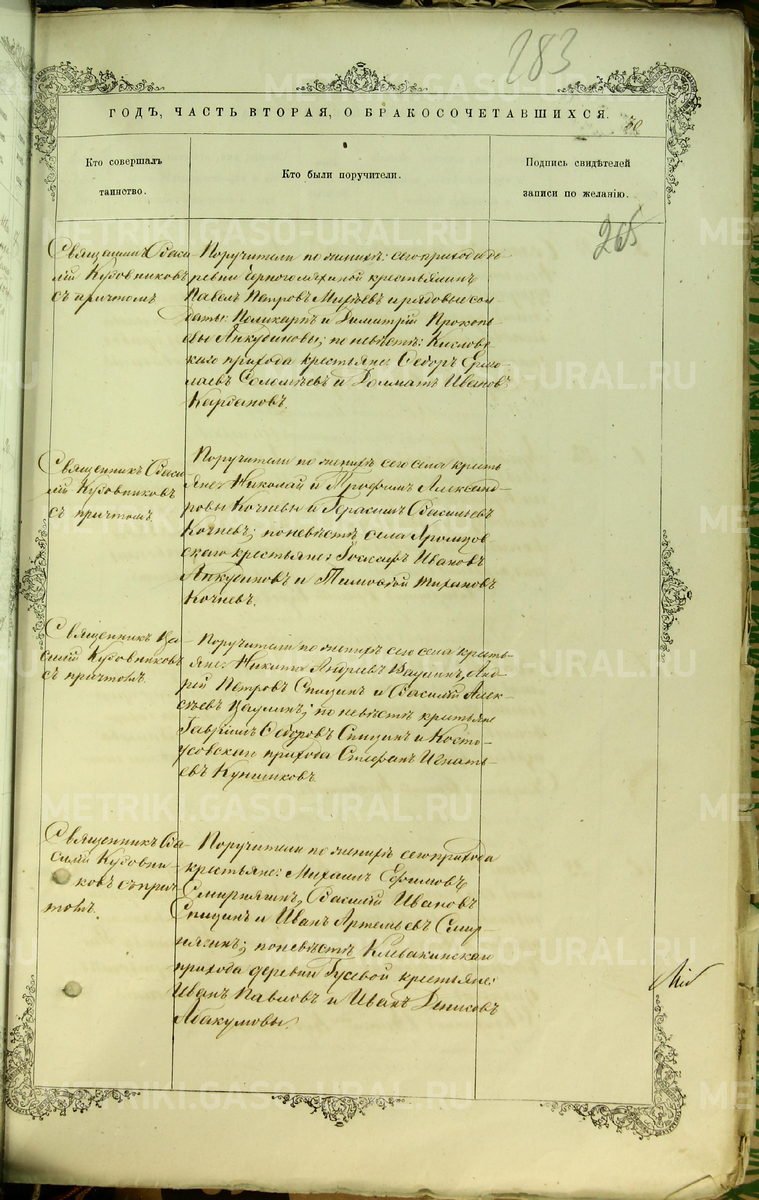 283
ГОДЪ, ЧАСТЬ ВТОРАЯ, О БРАКОСОЧЕТАВШИХСЯ.
Кто совершалъ
таинство.
Кто были поручители.
Подпись свидѣтелей
записи по желанію.
265
Священникъ Васи-
лій Кудовниковъ
съ причтомъ
Поручители по женихѣ: сего прихода де
ревни Черноголяхиной крестьянинъ
Павелъ Петровъ Михѣевъ и рядовые сол
даты: Поликарпъ и Димитрій Прокопь
евы Анкудиновы; по невѣстѣ: Кислов
скаго прихода крестьяне: Ѳедоръ Ермо
лаевъ Соломѣевъ и Долматъ Ивановъ
Кардановъ.
Священникъ Васи
лій Кудовниковъ
съ причтомъ.
Поручители по женихѣ сего села кресть
яне: Николай и Трофимъ Александ-
ровы Кочневы и Герасимъ Васильевъ
Кочневъ; по невѣстѣ села Арамашев
скаго крестьяне: Іоасафъ Ивановъ
Анкудиновъ и Тимоѳей Тихановъ
Кочневъ.
Священникъ Ва-
силій Кудовниковъ
съ причтомъ.
Поручители по женихѣ сего села кресть-
яне: Никита Андреевъ Ваулинъ, Анд-
рей Петровъ Спицинъ и Василій Алек-
сѣевъ Ваулинъ; по невѣстѣ крестьяне
Гавріилъ Ѳедоровъ Спицинъ и Косто-
усовскаго прихода Стефанъ Игнать-
евъ Куншиковъ.
Священникъ Ва-
силій Кудовни-
ковъ съ прич-
томъ.
Поручители по женихѣ сего прихода
крестьяне: Михаилъ Ефимовъ
Смирнягинъ, Василій Ивановъ
Спицинъ и Иванъ Артемьевъ Смир-
нягинъ; по невѣстѣ Клевакинскаго
прихода деревни Гусевой крестьяне:
Иванъ Павловъ и Иванъ Денисовъ
Абакумовы.
METRIKI.GASO-URAL.RU